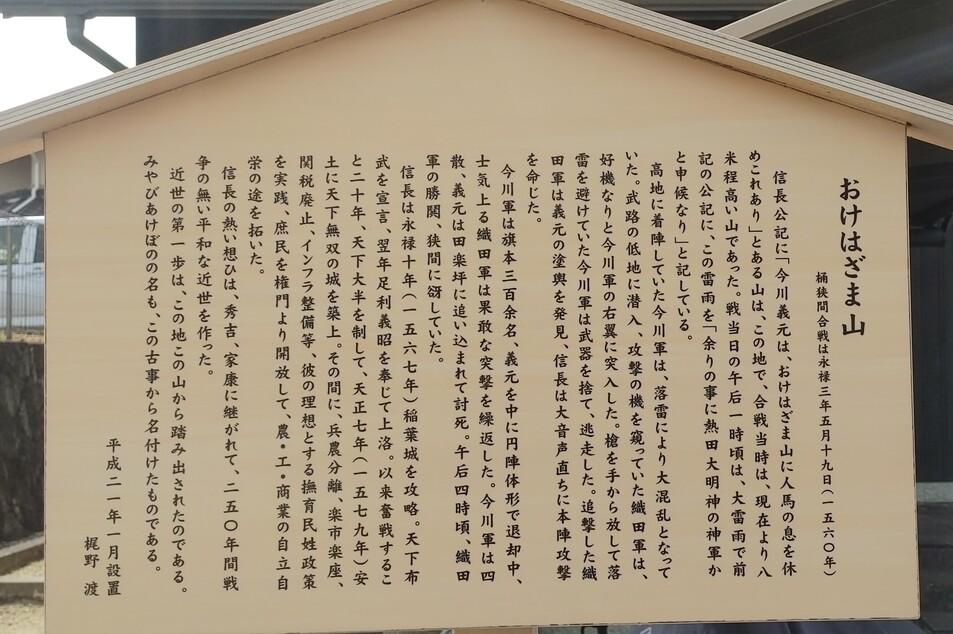 おけはざま山
桶狭間合戦は永禄三年五月十九日(一五六〇年)
信長公記に「今川義元は、おけはざま山に人馬の息を休
めこれあり」とある山は、この地で、合戦当時は、現在より八
米程高い山であった。戦当日の午后一時頃は、大雷雨で前
記の公記に、この雷雨を「余りの事に熱田大明神の神軍か
と申候なり」と記している。
高地に着陣していた今川軍は、落雷により大混乱となって
いた。武路の低地に潜入、攻撃の機を窺っていた織田軍は、
好機なりと今川軍の右翼に突入した。槍を手から放して落
雷を避けていた今川軍は武器を捨て、逃走した。追撃した織
田軍は義元の塗輿を発見、信長は大音声直ちに本陣攻撃
を命じた。
今川軍は旗本三百余名、義元を中に円陣体形で退却中、
士気上る織田軍は果敢な突撃を繰返した。今川軍は四
散、義元は田楽坪に追い込まれて討死。午后四時頃、織田
軍の勝閧、狭間に谺していた。
信長は永禄十年(一五六七年)稲葉城を攻略。天下布
武を宣言、翌年足利義昭を奉じて上洛。以来奮戦するこ
と二十年、天下大半を制して、天正七年(一五七九年)安
土に天下無双の城を築上。その間に、兵農分離、楽市楽座、
関税廃止、インフラ整備等、彼の理想とする撫育民姓政策
を実践、庶民を権門より開放して、農・工・商業の自立自
栄の途を拓いた。
信長の熱い想ひは、秀吉、家康に継がれて、二五〇年間戦
争の無い平和な近世を作った。
近世の第一歩は、この地この山から踏み出されたのである。
みやびあけぼのの名も、この古事から名付けたものである。
平成二一年一月設置
梶野 渡